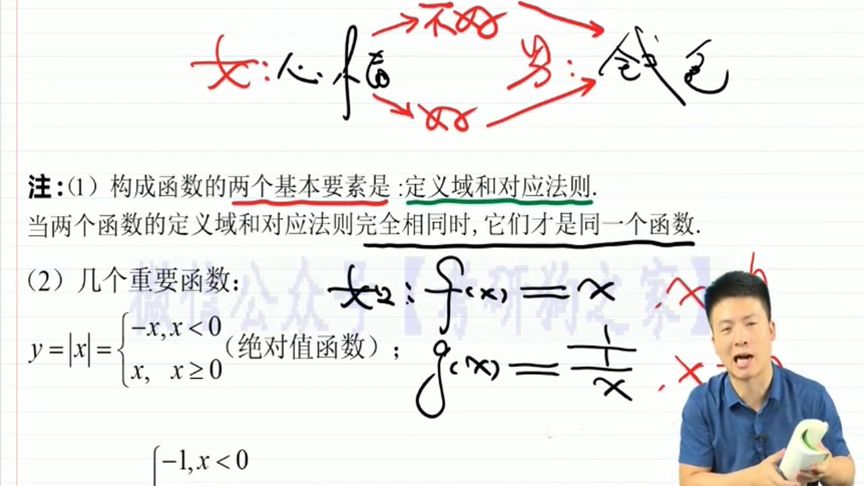 不好
女：心情 男：钱包
好
注：(1) 构成函数的两个基本要素是：定义域和对应法则.
当两个函数的定义域和对应法则完全相同时，它们才是同一个函数.
(2) 几个重要函数：
如：f(x)=x
y=|x|={-x, x<0
x, x≥0 (绝对值函数)；
g(x)=1/(1/x)
-1, x<0
微信公众号【考研狗之家】